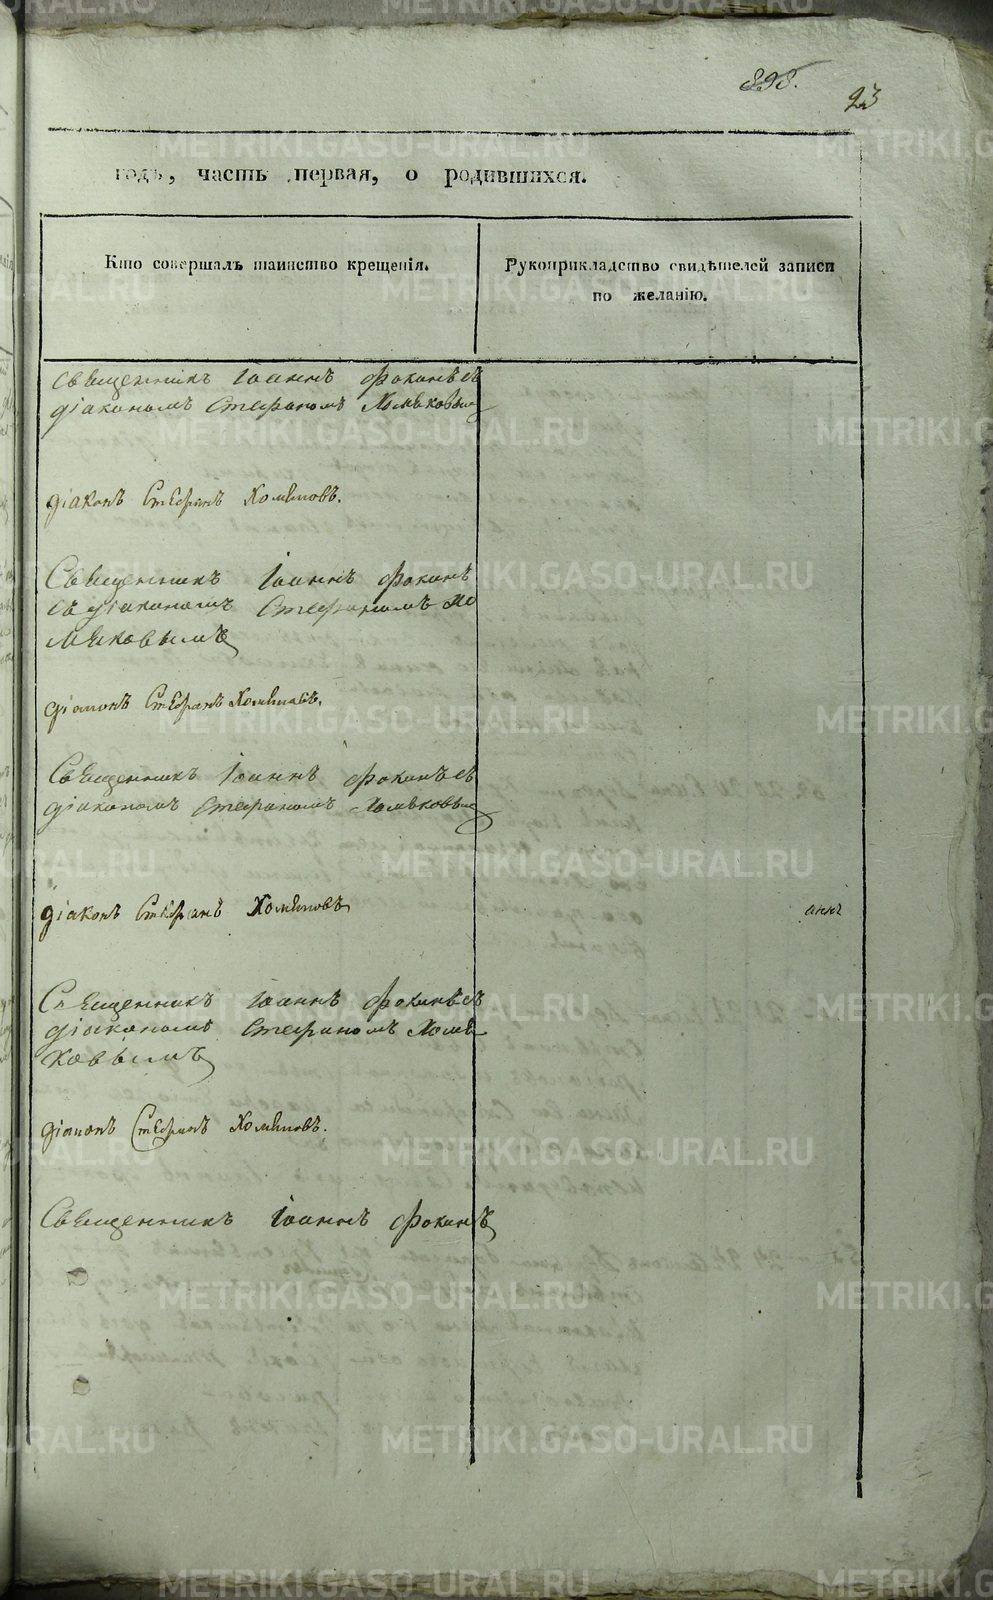 898.
23
годъ, часть первая, о родившихся.
Кто совершалъ таинство крещенія.
Рукоприкладство свидѣтелей записи
по желанію.
Священникъ Іоаннъ Фокинъ съ
діакономъ Стефаномъ Хомяковым
діаконъ Стефанъ Хомяковъ.
Священникъ Іоаннъ Фокинъ
съ діакономъ Стефаномъ Хо
мяковымъ
діаконъ Стефанъ Хомяковъ.
Священникъ Іоаннъ Фокинъ съ
діакономъ Стефаномъ Хомяковым
діаконъ Стефанъ Хомяковъ
Священникъ Іоаннъ Фокинъ съ
діакономъ Стефаномъ Хомя
ковымъ
діаконъ Стефанъ Хомяковъ.
Священникъ Іоаннъ Фокинъ
METRIKI.GASO-URAL.RU